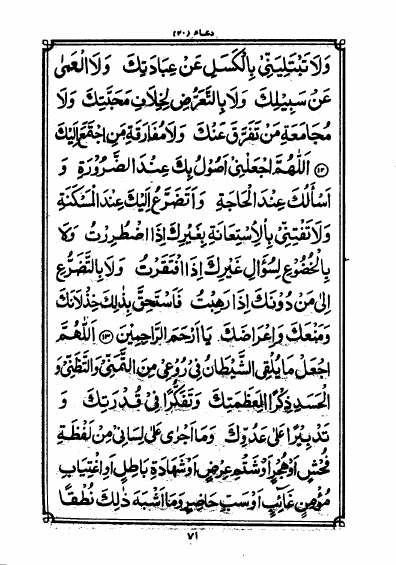 دعاء (۲۰)
وَلَا تَبْتَلِيَنِّيْ بِالْكَسَلِ عَنْ عِبَادَتِكَ وَلَا الْعَمٰى
عَنْ سَبِيْلِكَ وَلَا بِالتَّعَرُّضِ لِخِلَافِ مَحَبَّتِكَ وَلَا
مُجَامَعَةِ مَنْ تَفَرَّقَ عَنْكَ وَلَا مُفَارَقَةِ مَنِ اجْتَمَعَ اِلَيْكَ
(۱۲) اَللّٰهُمَّ اجْعَلْنِيْ اَصُوْلُ بِكَ عِنْدَ الضَّرُوْرَةِ وَ
اَسْأَلُكَ عِنْدَ الْحَاجَةِ وَاَتَضَرَّعُ اِلَيْكَ عِنْدَ الْمَسْكَنَةِ
وَلَا تَفْتِنِّيْ بِالْاِسْتِعَانَةِ بِغَيْرِكَ اِذَا اضْطُرِرْتُ وَلَا
بِالْخُضُوْعِ لِسُؤَالِ غَيْرِكَ اِذَا افْتَقَرْتُ وَلَا بِالتَّضَرُّعِ
اِلٰى مَنْ دُوْنَكَ اِذَا رَهِبْتُ فَاَسْتَحِقَّ بِذٰلِكَ خِذْلَانَكَ
وَمَنْعَكَ وَاِعْرَاضَكَ يَا اَرْحَمَ الرَّاحِمِيْنَ (۱۳) اَللّٰهُمَّ
اجْعَلْ مَا يُلْقِي الشَّيْطَانُ فِيْ رُوْعِيْ مِنَ التَّمَنِّيْ وَالتَّظَنِّيْ وَ
الْحَسَدِ ذِكْرًا لِعَظَمَتِكَ وَتَفَكُّرًا فِيْ قُدْرَتِكَ وَ
تَدْبِيْرًا عَلٰى عَدُوِّكَ وَمَا اَجْرٰى عَلٰى لِسَانِيْ مِنْ لَفْظَةِ
فُحْشٍ اَوْ هُجْرٍ اَوْ شَتْمِ عِرْضٍ اَوْ شَهَادَةِ بَاطِلٍ اَوِ اغْتِيَابِ
مُؤْمِنٍ غَائِبٍ اَوْ سَبِّ حَاضِرٍ وَمَا اَشْبَهَ ذٰلِكَ نُطْقًا
۷۱